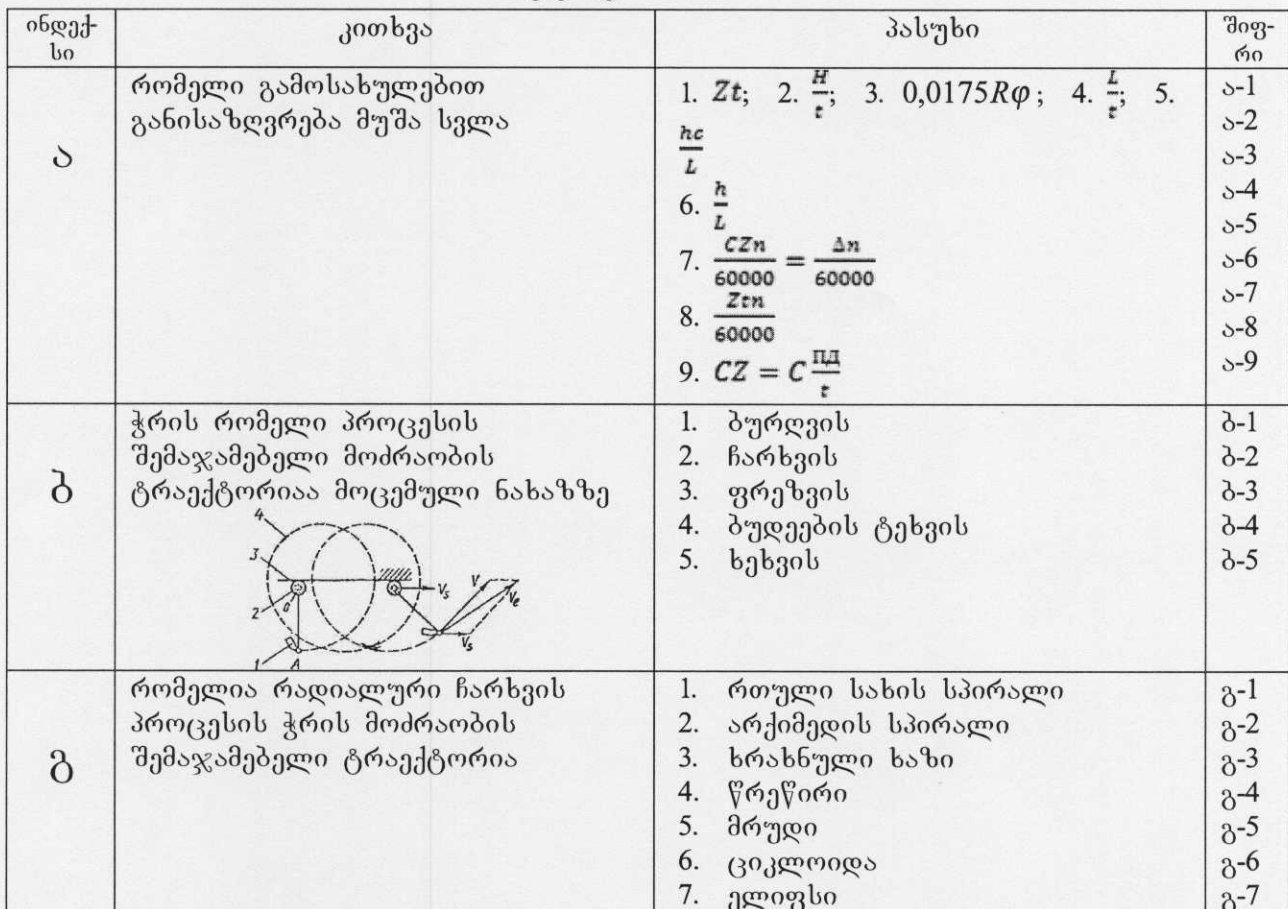 ინდექ-
სი
კითხვა
პასუხი
შიფ-
რი
ა
რომელი გამოსახულებით
განისაზღვრება მუშა სვლა
1. Zt; 2. H/t; 3. 0,0175Rφ ; 4. L/t; 5.
hc/L
6. h/L
7. CZn/60000 = Δn/60000
8. Ztn/60000
9. CZ = C ПД/t
ა-1
ა-2
ა-3
ა-4
ა-5
ა-6
ა-7
ა-8
ა-9
ბ
ჭრის რომელი პროცესის
შემაჯამებელი მოძრაობის
ტრაექტორიაა მოცემული ნახაზზე
4
3
2
a
1
A
Vs
V
Ve
Vs
1. ბურღვის
2. ჩარხვის
3. ფრეზვის
4. ბუდეების ტეხვის
5. ხეხვის
ბ-1
ბ-2
ბ-3
ბ-4
ბ-5
გ
რომელია რადიალური ჩარხვის
პროცესის ჭრის მოძრაობის
შემაჯამებელი ტრაექტორია
1. რთული სახის სპირალი
2. არქიმედის სპირალი
3. ხრახნული ხაზი
4. წრეწირი
5. მრუდი
6. ციკლოიდა
7. ელიფსი
გ-1
გ-2
გ-3
გ-4
გ-5
გ-6
გ-7